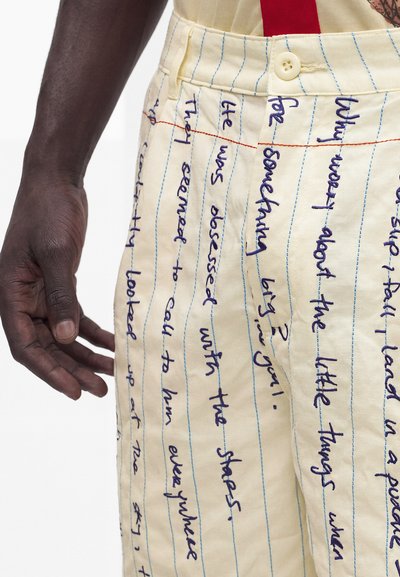 slip, fall, land in a puddle
Why worry about the little things when
for something big?
He was obsessed with the stars.
They seemed to call to him everywhere
constantly looked up at the sky,